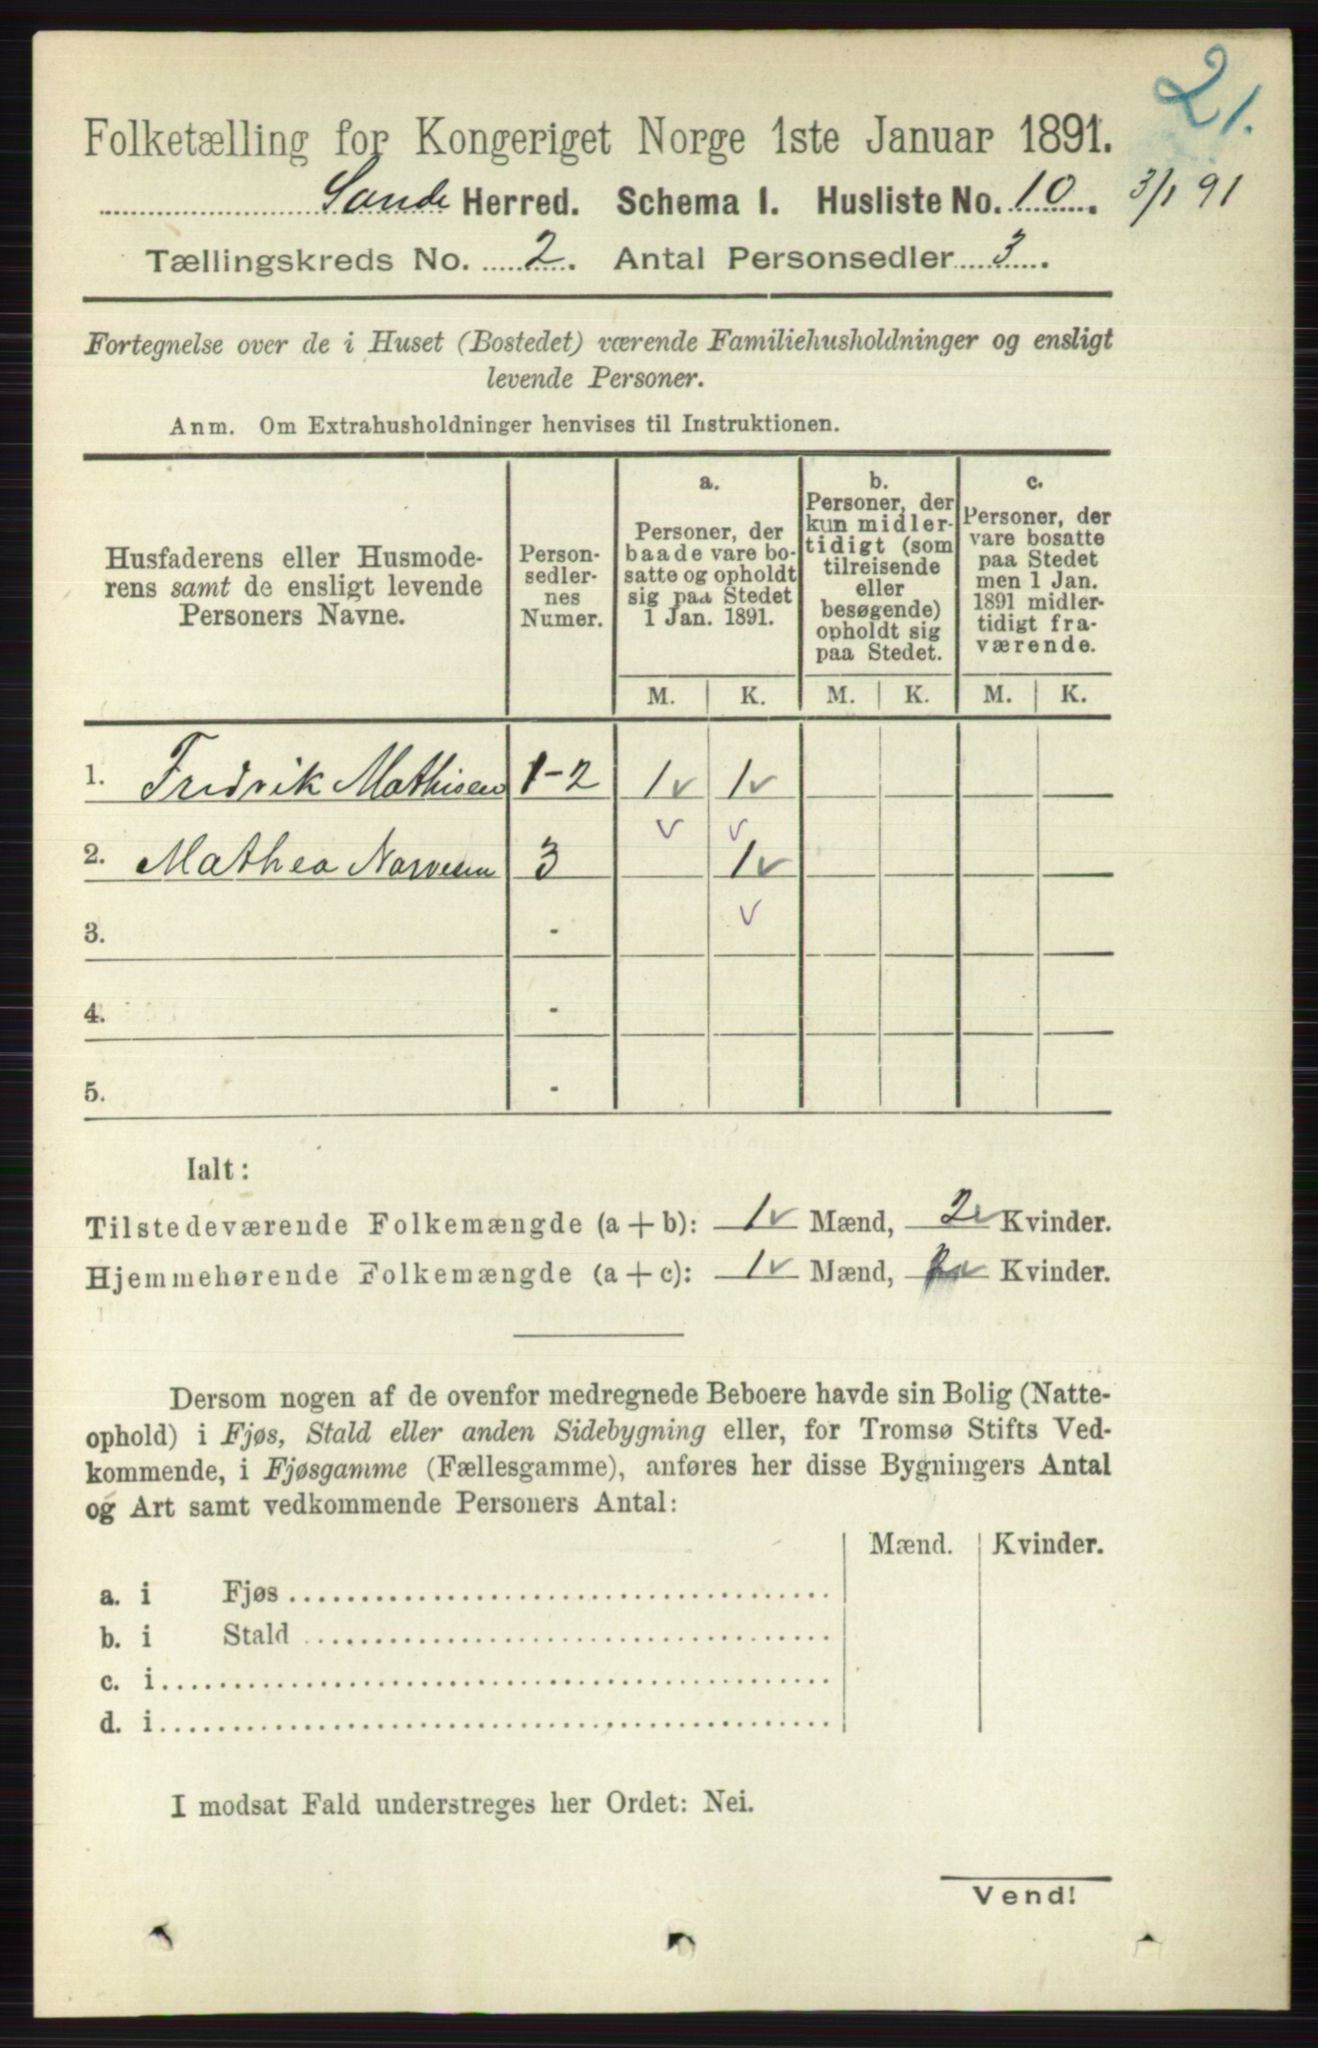 21.
Folketælling for Kongeriget Norge 1ste Januar 1891.
Sande Herred. Schema I. Husliste No. 10. 3/1 91
Tællingskreds No. 2. Antal Personsedler 3.
Fortegnelse over de i Huset (Bostedet) værende Familiehusholdninger og ensligt
levende Personer.
Anm. Om Extrahusholdninger henvises til Instruktionen.
Husfaderens eller Husmode-
rens samt de ensligt levende
Personers Navne.
Person-
sedler-
nes
Numer.
a.
Personer, der
baade vare bo-
satte og opholdt
sig paa Stedet
1 Jan. 1891.
b.
Personer, der
kun midler-
tidigt (som
tilreisende
eller
besøgende)
opholdt sig
paa Stedet.
c.
Personer, der
vare bosatte
paa Stedet
men 1 Jan.
1891 midler-
tidigt fra-
værende.
M. K. M. K. M. K.
1. Fredrik Mathisen 1-2 1 v 1 v
v v
2. Mathea Narvesen 3 1 v
v
3. -
4. -
5. -
Ialt:
Tilstedeværende Folkemængde (a + b): 1 v Mænd, 2 v Kvinder.
Hjemmehørende Folkemængde (a + c): 1 v Mænd, 2 v Kvinder.
Dersom nogen af de ovenfor medregnede Beboere havde sin Bolig (Natte-
ophold) i Fjøs, Stald eller anden Sidebygning eller, for Tromsø Stifts Ved-
kommende, i Fjøsgamme (Fællesgamme), anføres her disse Bygningers Antal
og Art samt vedkommende Personers Antal:
Mænd. Kvinder.
a. i Fjøs
b. i Stald
c. i
d. i
I modsat Fald understreges her Ordet: Nei.
Vend!